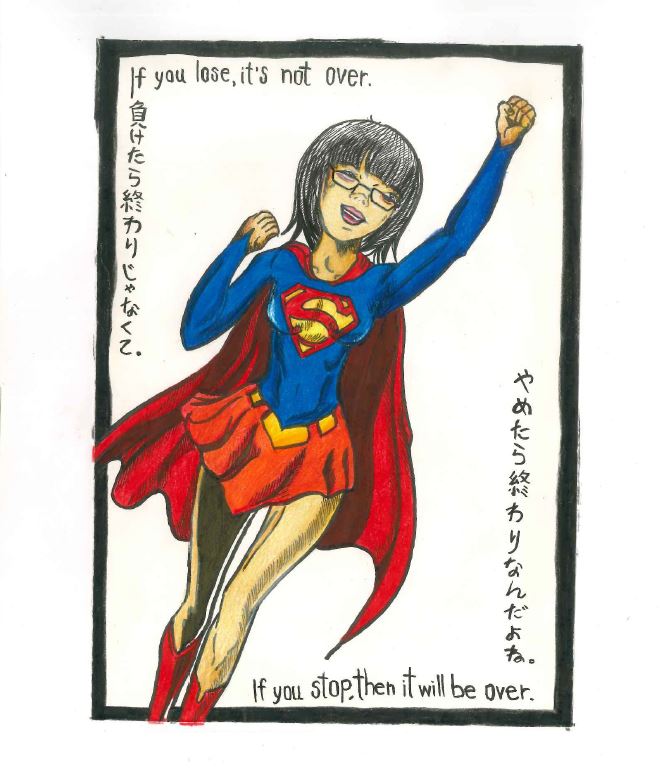 If you lose, it's not over.
負けたら終わりじゃなくて。
やめたら終わりなんだよね。
If you stop, then it will be over.
S